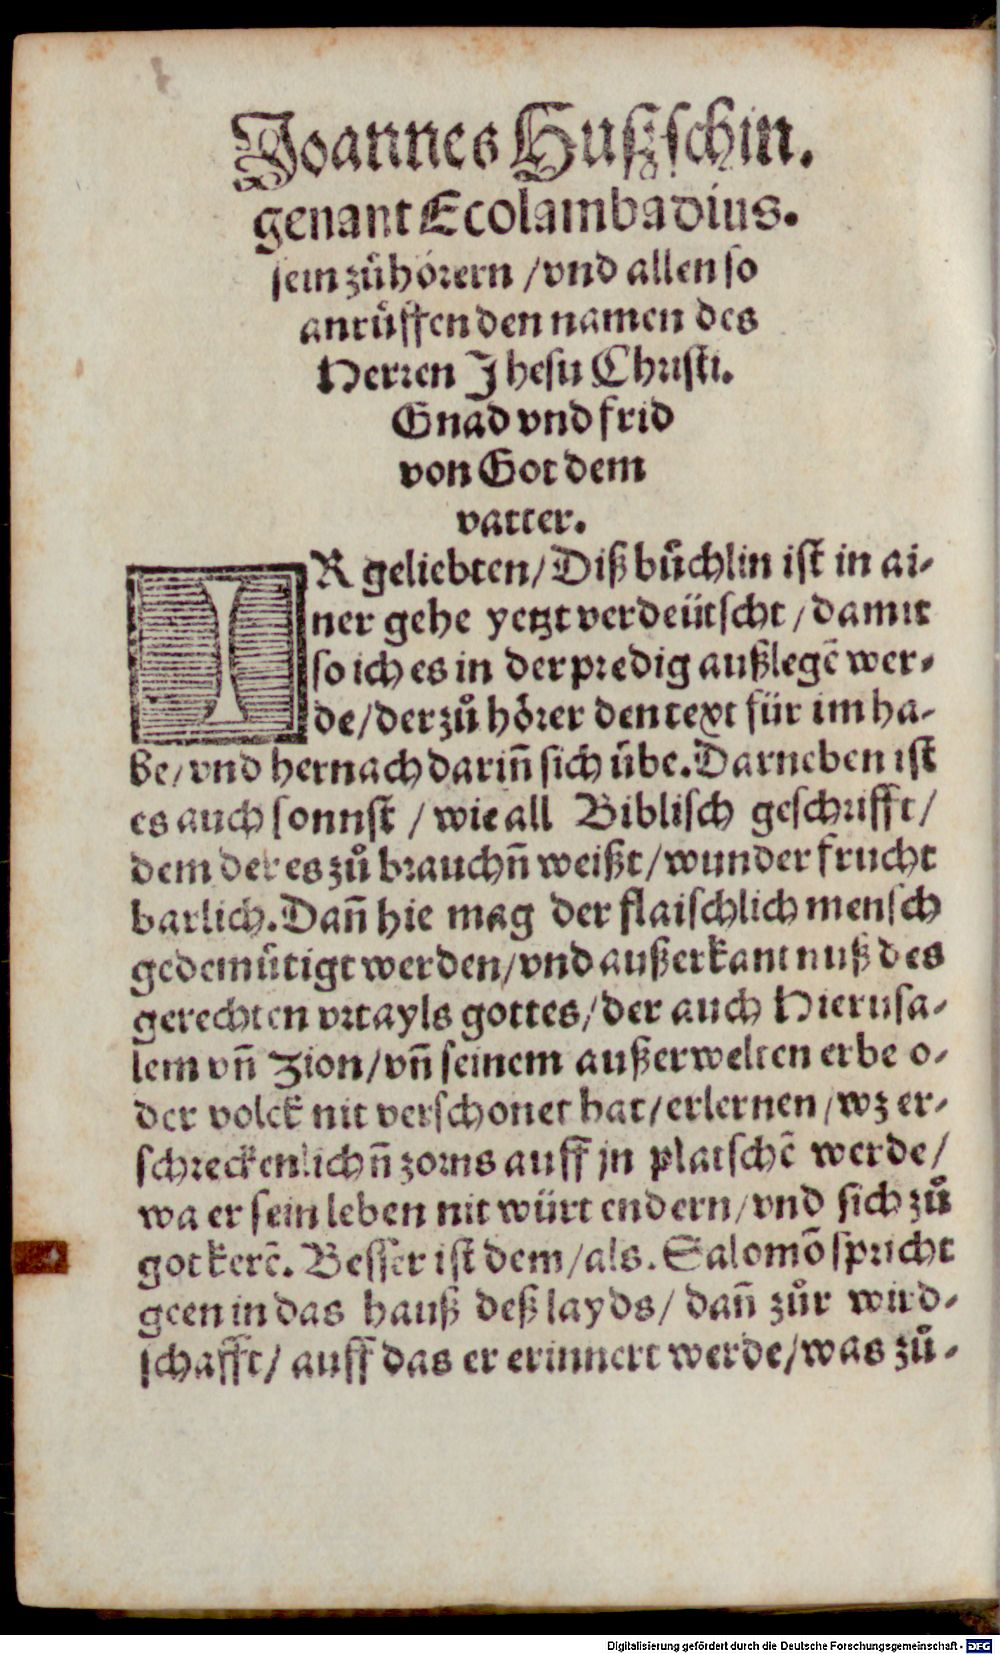 Joannes Huſzſchin.
genant Ecolambadius.
ſein zůhoͤrern /vnd allen ſo
anruͤffen den namen des
Herren Jheſu Chriſti.
Gnad vnd frid
von Got dem
vatter.
IR geliebten/Diß buͤchlin iſt in ai-
ner gehe yetzt verdeütſcht/damit
ſo ich es in der predig außlegē wer-
de/der zů hoͤrer den text für im ha-
be/vnd hernach dariñ ſich uͤbe. Darneben iſt
es auch ſonnſt / wie all Bibliſch geſchrifft/
dem der es zů brauchñ weißt/wunder frucht
barlich. Dañ hie mag der flaiſchlich menſch
gedemuͤtigt werden/vnd außerkantnuß des
gerechten vrtayls gottes/der auch Hieruſa-
lem vñ Zion/vñ ſeinem außerwelten erbe o-
der volck nit verſchonet hat/erlernen/wz er-
ſchreckenlichñ zorns auff jn platſchē werde/
wa er ſein leben nit würt endern/vnd ſich zů
got kerē. Beſſer iſt dem/als. Salomō ſpricht
geen in das hauß deß layds/ dañ zůr wird-
ſchafft/ auff das er erinnert werde/was zů-
Digitalisierung gefördert durch die Deutsche Forschungsgemeinschaft - DFG